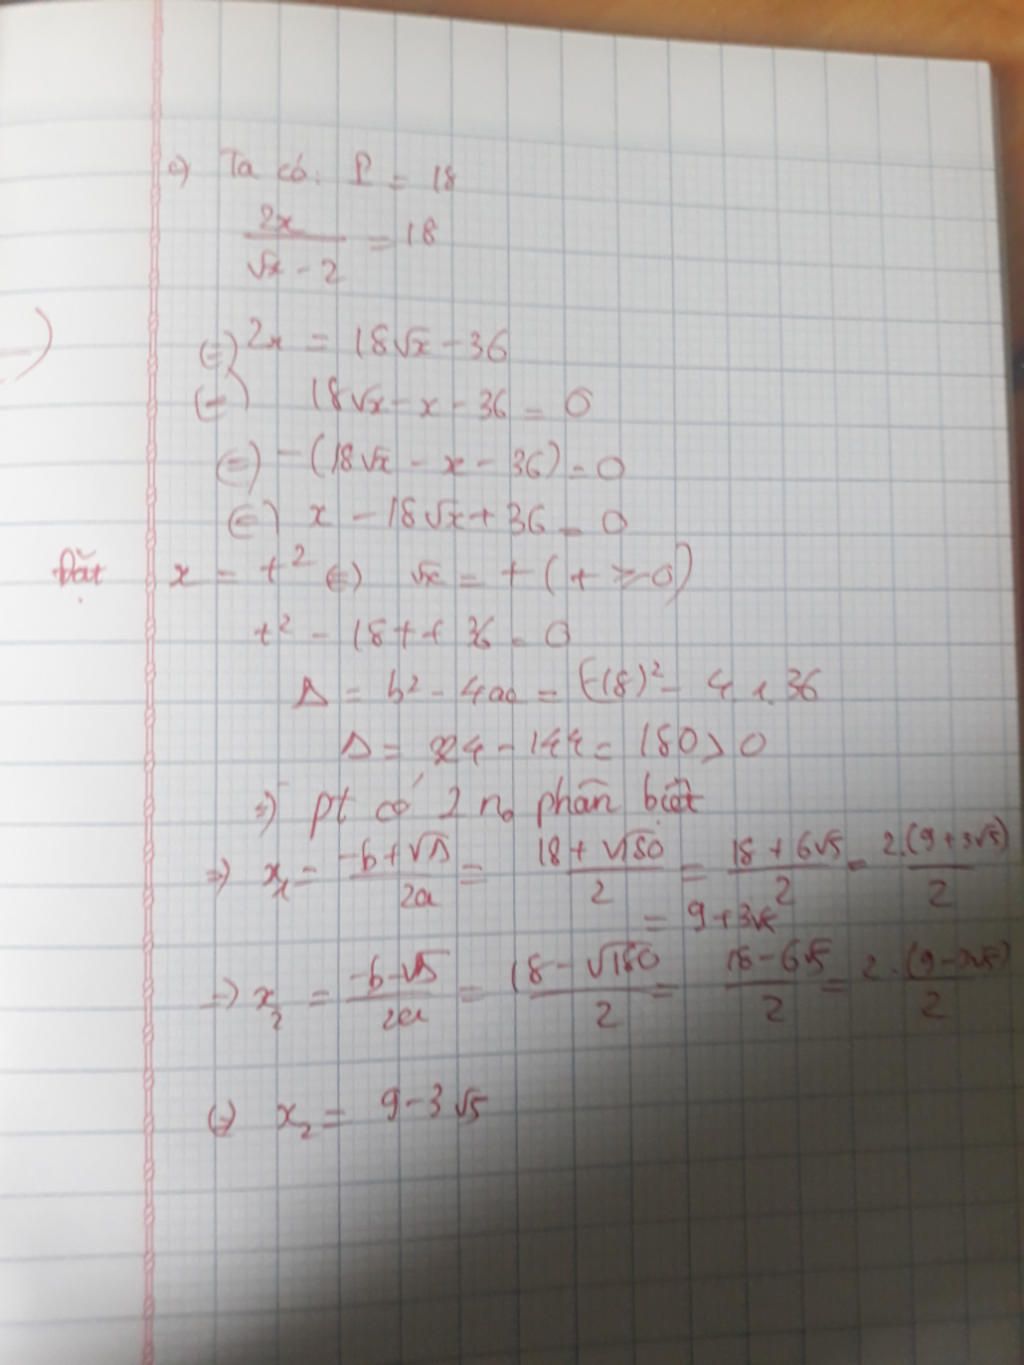 c) Ta có: P = 18
2x / (√x - 2) = 18
(=) 2x = 18√x - 36
(=) 18√x - x - 36 = 0
(=) -(18√x - x - 36) = 0
(=) x - 18√x + 36 = 0
Đặt x = t² (=) √x = t (t >= 0)
t² - 18t + 36 = 0
Δ = b² - 4ac = (-18)² - 4.1.36
Δ = 324 - 144 = 180 > 0
=) pt có 2 no phân biệt
=) x₁ = (-b + √Δ) / 2a = (18 + √180) / 2 = (18 + 6√5) / 2 = 2.(9 + 3√5) / 2
= 9 + 3√5
=) x₂ = (-b - √Δ) / 2a = (18 - √180) / 2 = (18 - 6√5) / 2 = 2.(9 - 3√5) / 2
(=) x₂ = 9 - 3√5